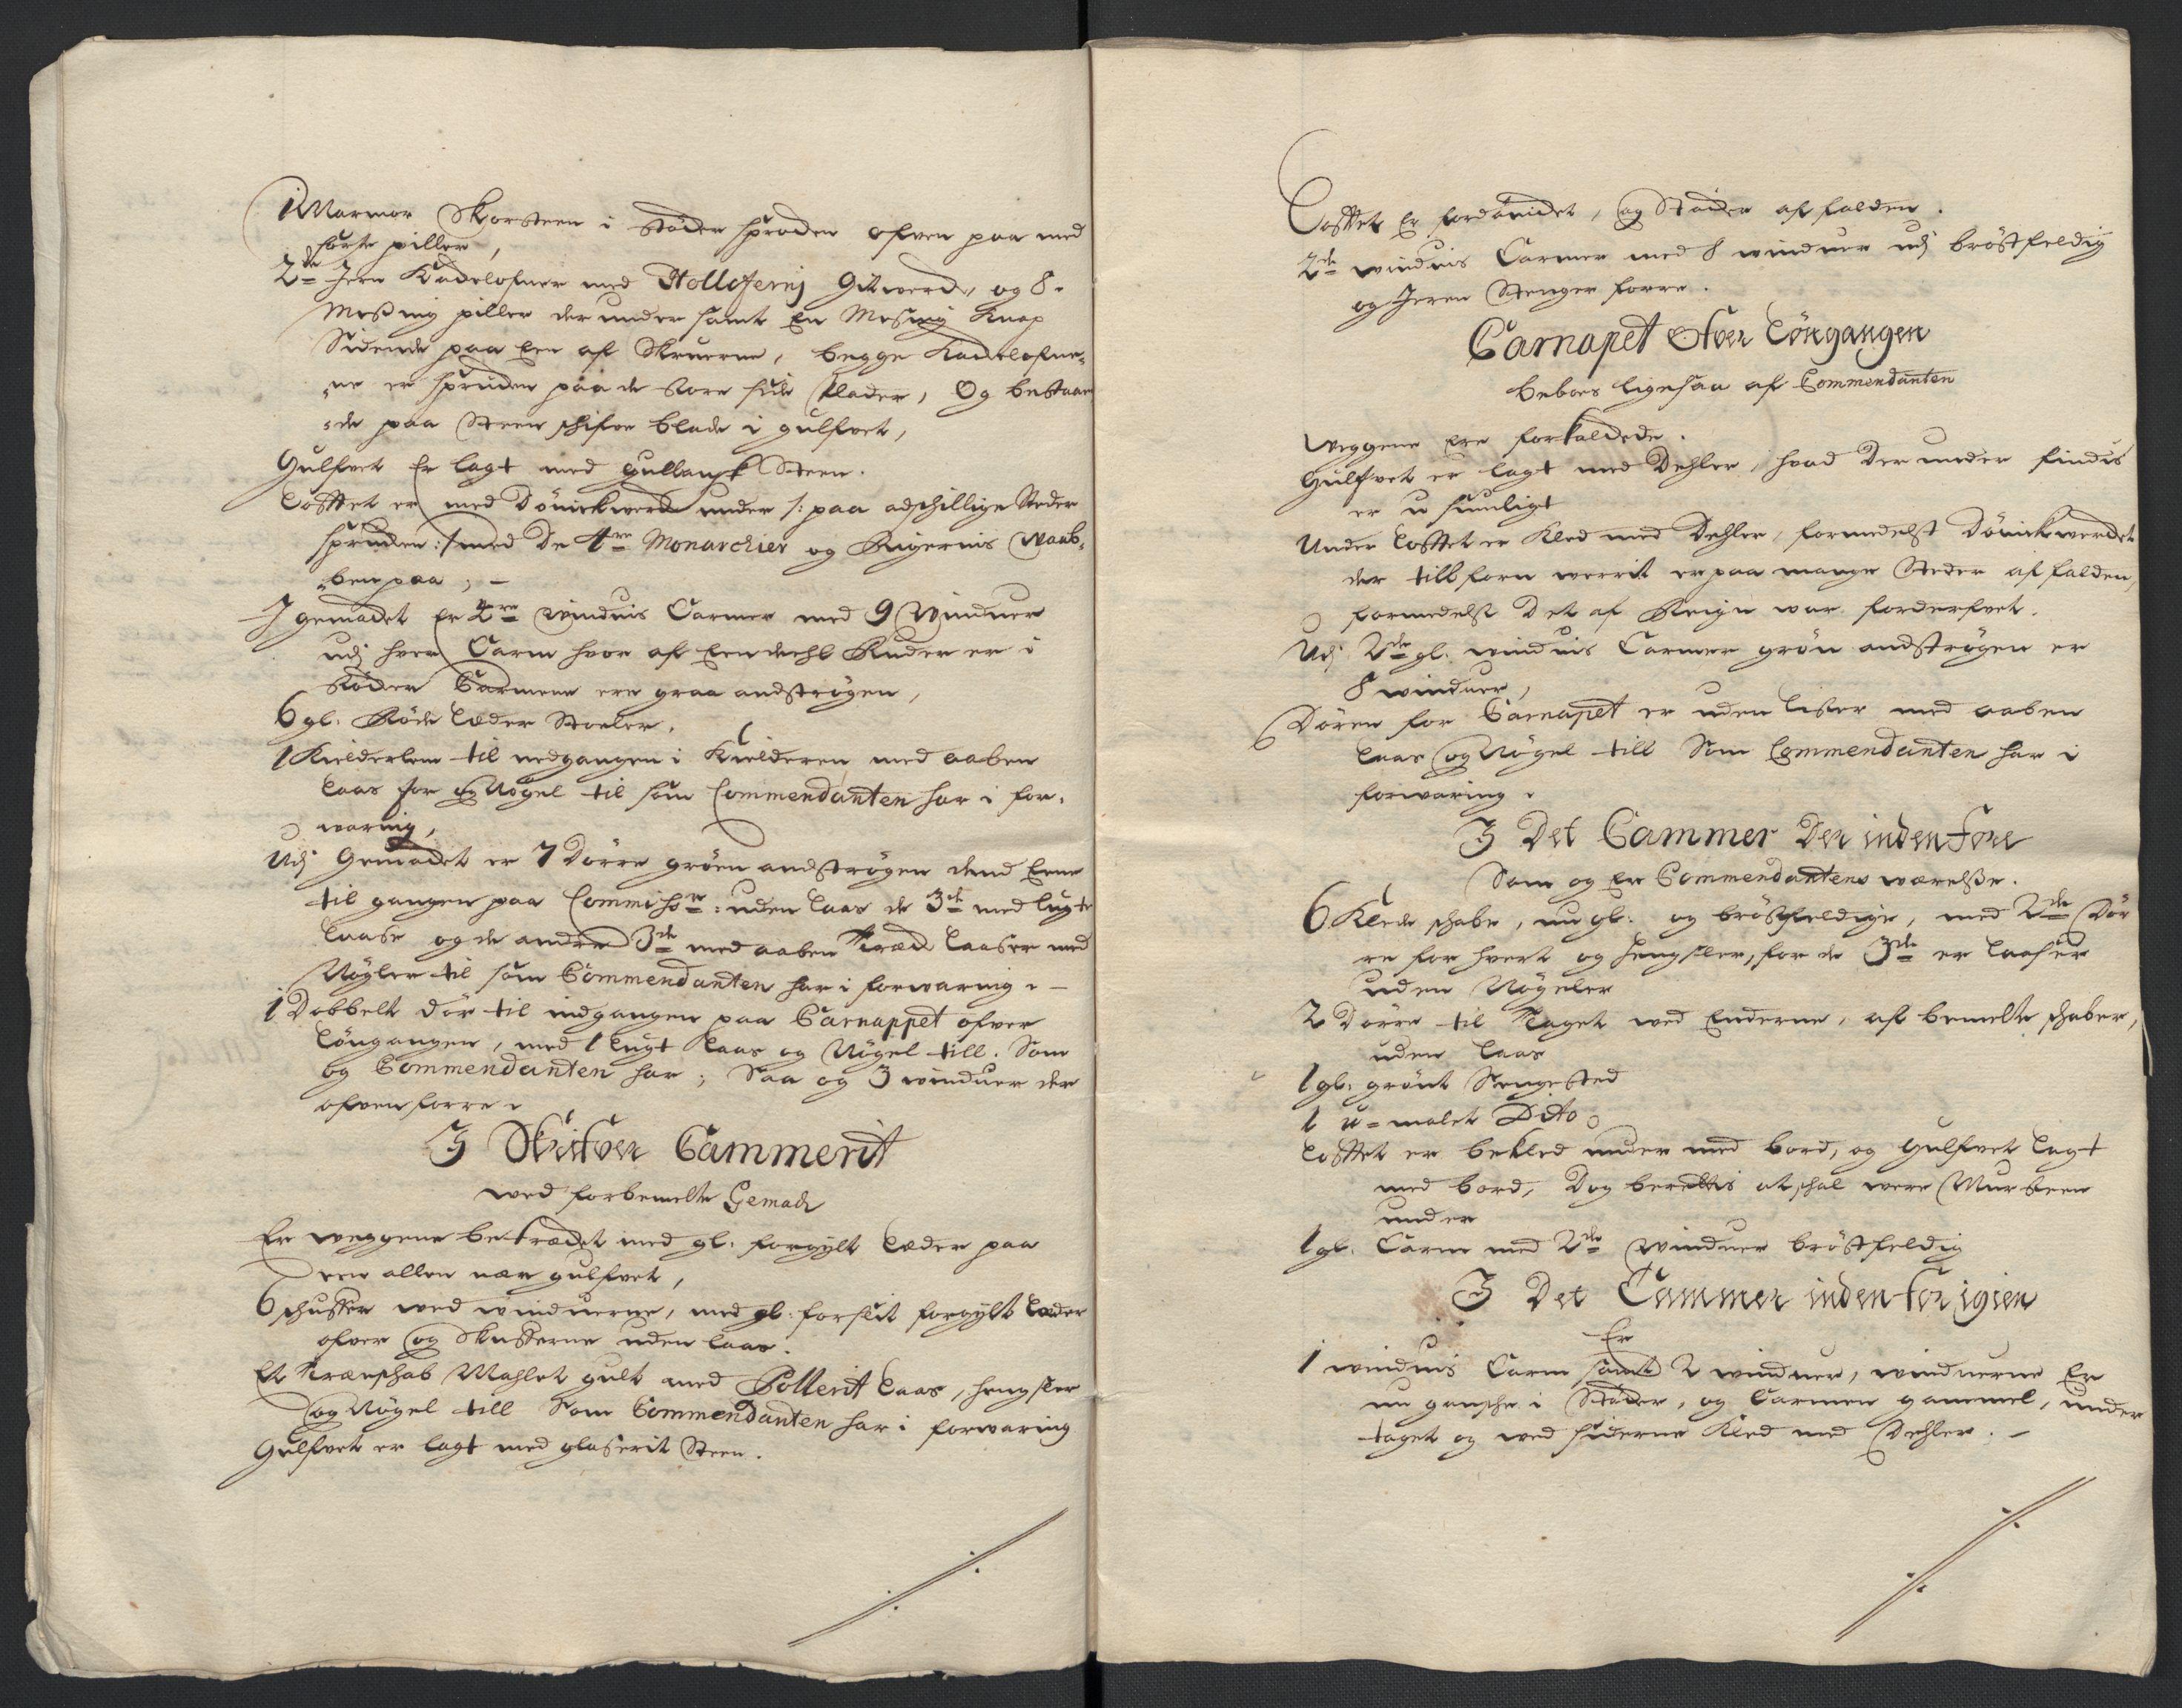 1 Marmor Skorsteen i Støcker sprocken ofven paa med
sorte piller,
2de Jern Kackelofner med Holloferny Gitwerd, og 8.
Messing piller der under samt En Messing Knap
Sidende paa Een af Skruerne, begge Kackelofne-
ne er sprucken paa de store side plader, Og bestaar
de paa Steen schifve blade i gulfvet,
Gulfvet Er lagt med gullansk Steen.
Lofftet er med Dönickwerck under /: paa adschillige Steder
sprucken :/ med De 4re Monarchier og Rigernis Waab-
ben paa; –
I gemacket Er 4re Winduis Carmer med 9 Winduer
udj hver Carm hvor af Een deehl Ruder er i
støcker Carmene ere graa andstrøgen,
6 gl. Røde Læder Stoeler,
1 Kielderlem til nedgangen i Kielderen med aaben
Laas for og Nøgel til som Commendanten har i for-
waring,
Udj Gemacket er 7 Dörre grøen andstrøgen dend Eene
til gangen paa Commissre: uden Laas de 3de med lugte
Laase og de andre 3de med aaben Træd Laaser med
Nøgler til som Commendanten har i forwaring –
1 Dobbelt dör til indgangen paa Carnappet ofver
Løngangen, med 1 lugt Laas og Nøgel till. Som
og Commendanten har; Saa og 3 winduer der
ofven forre
I Skrifver Cammerit
wed forbemelte Gemack
Er weggene betræcket med gl. forgylt Læder paa
een allen nær gulfvet,
6 schuffer wed winduerne, med gl. forslit forgylt Læder
ofver og Skufferne uden laas.
Et Træeschab Mahlet gult med Pollerit Laas, hengsler
og Nøgel till Som Commendanten har i forwaring
Gulfvet er lagt med glaserit Steen.
Lofftet Er fordærvidet, og Støcker af falden.
2de winduis Carmer med 8 winduer udj brøstfeldig
og Jeren Stenger forre.
Carnapet Ofver Løngangen
beboes ligesaa af Commendanten
Weggene ere forkaldede.
Gulfvet er lagt med Dehler, hvad Der under findis
er u siunligt
Under Lofftet er Kled med Dehler, formedelst Dönickwercket
der tillforn werrit er paa mange Steder af falden,
formedelst Det af Reign war forderfvet.
Udj 2de gl. winduis Carmer grøn andstrøgen er
8 winduer,
Dören for Carnapet er uden lister med aaben
Laas og Nøgel till Som Commendanten har i
forwaring
I Det Cammer Der inden fore
Som og Er Commendantens wærelsse.
6 Klede schabe, nu gl. og brøstfeldige, med 2de Dør
re for hvert og hengsler, for de 3de er Laaser
uden Nøgeler
2 Dörre til Taget wed Enderne, af bemelte schaber,
uden laas
1 gl. grönt Sengested
1 u-malet Dito
Lofftet er beKled under med bord, og Gulfvet lagt
med bord, Dog berettis at schal were Mursteen
under
1 gl. Carm med 2de Winduer brøstfeldig
I Det Cammer inden for igien
Er
1 winduis Carm samt 2 winduer, winduerne Er
nu gansche i Støcker, og Carmen gammel, under
taget og wed siderne Kled med Dehler. –